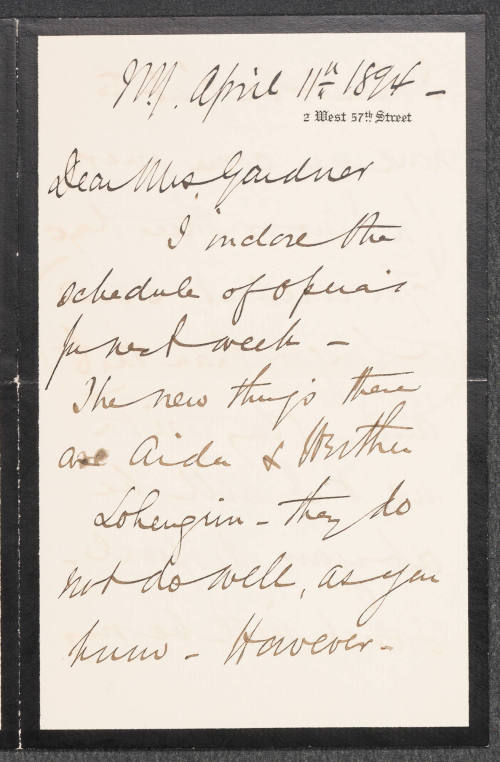 N.Y. April 11th 1894 -
2 West 57th Street
Dear Mrs. Gardner
I inclose the
schedule of operas
for next week -
The new things there
are Aida & Werther
Lohengrin - they do
not do well, as you
know - However -